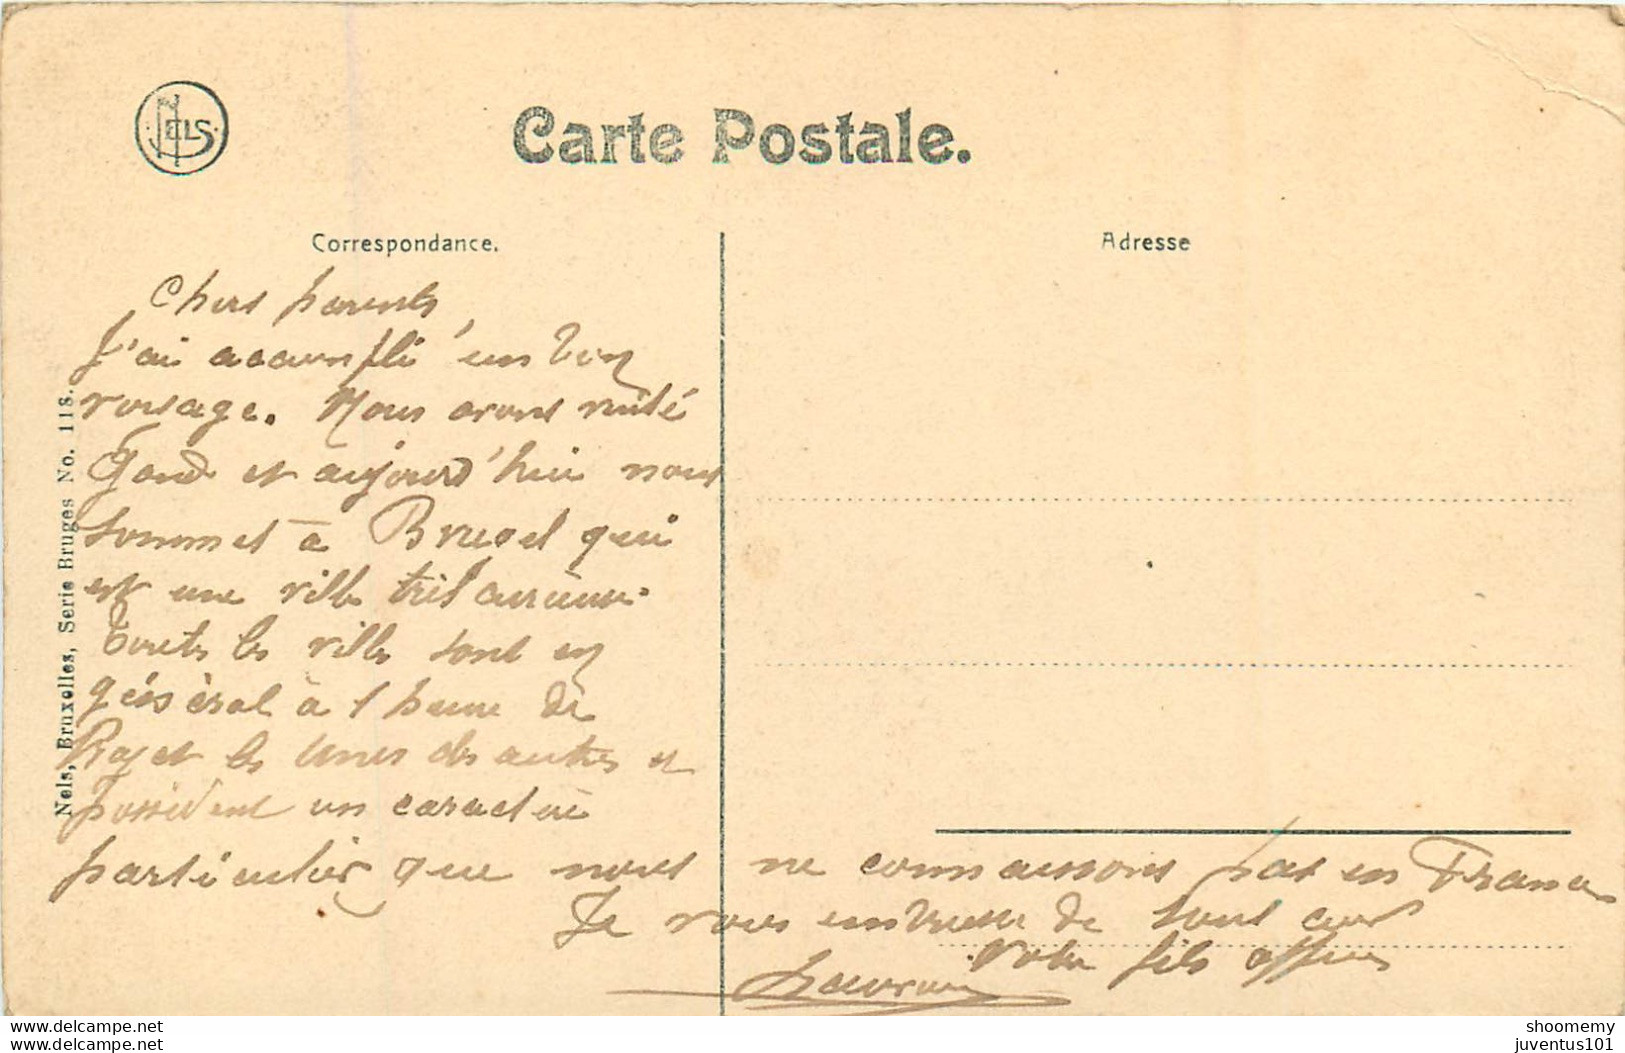 NELS
Carte Postale.
Correspondance.
Adresse
Nels, Bruxelles, Serie Bruges No. 118.
Chers parents
J'ai accompli un bon
voyage. Nous avons visité
Gand et aujourd'hui nous
sommes à Bruges qui
est une ville très curieuse.
Toutes les villes sont en
général à 1 heure de
trajet les unes des autres et
possèdent un caractère
particulier que nous ne connaissons pas en France
Je vous embrasse de tout cœur
Votre fils
shoomemy
juventus101